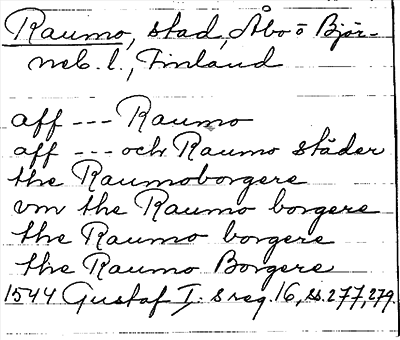 Raumo, stad, Åbo o Björ-
neb. l., Finland
aff --- Raumo
aff --- och Raumo städer
the Raumoborgere
vm the Raumo borgere
the Raumo borgere
the Raumo Borgere
1544 Gustaf I:s reg. 16, ss. 277, 279.